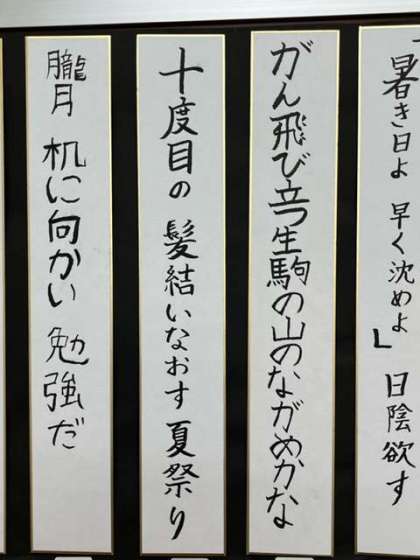 「暑き日よ 早く沈めよ」 日陰欲す
がん飛び立つ生駒の山のながめかな
十度目の 髪結いなおす 夏祭り
朧月 机に向かい 勉強だ